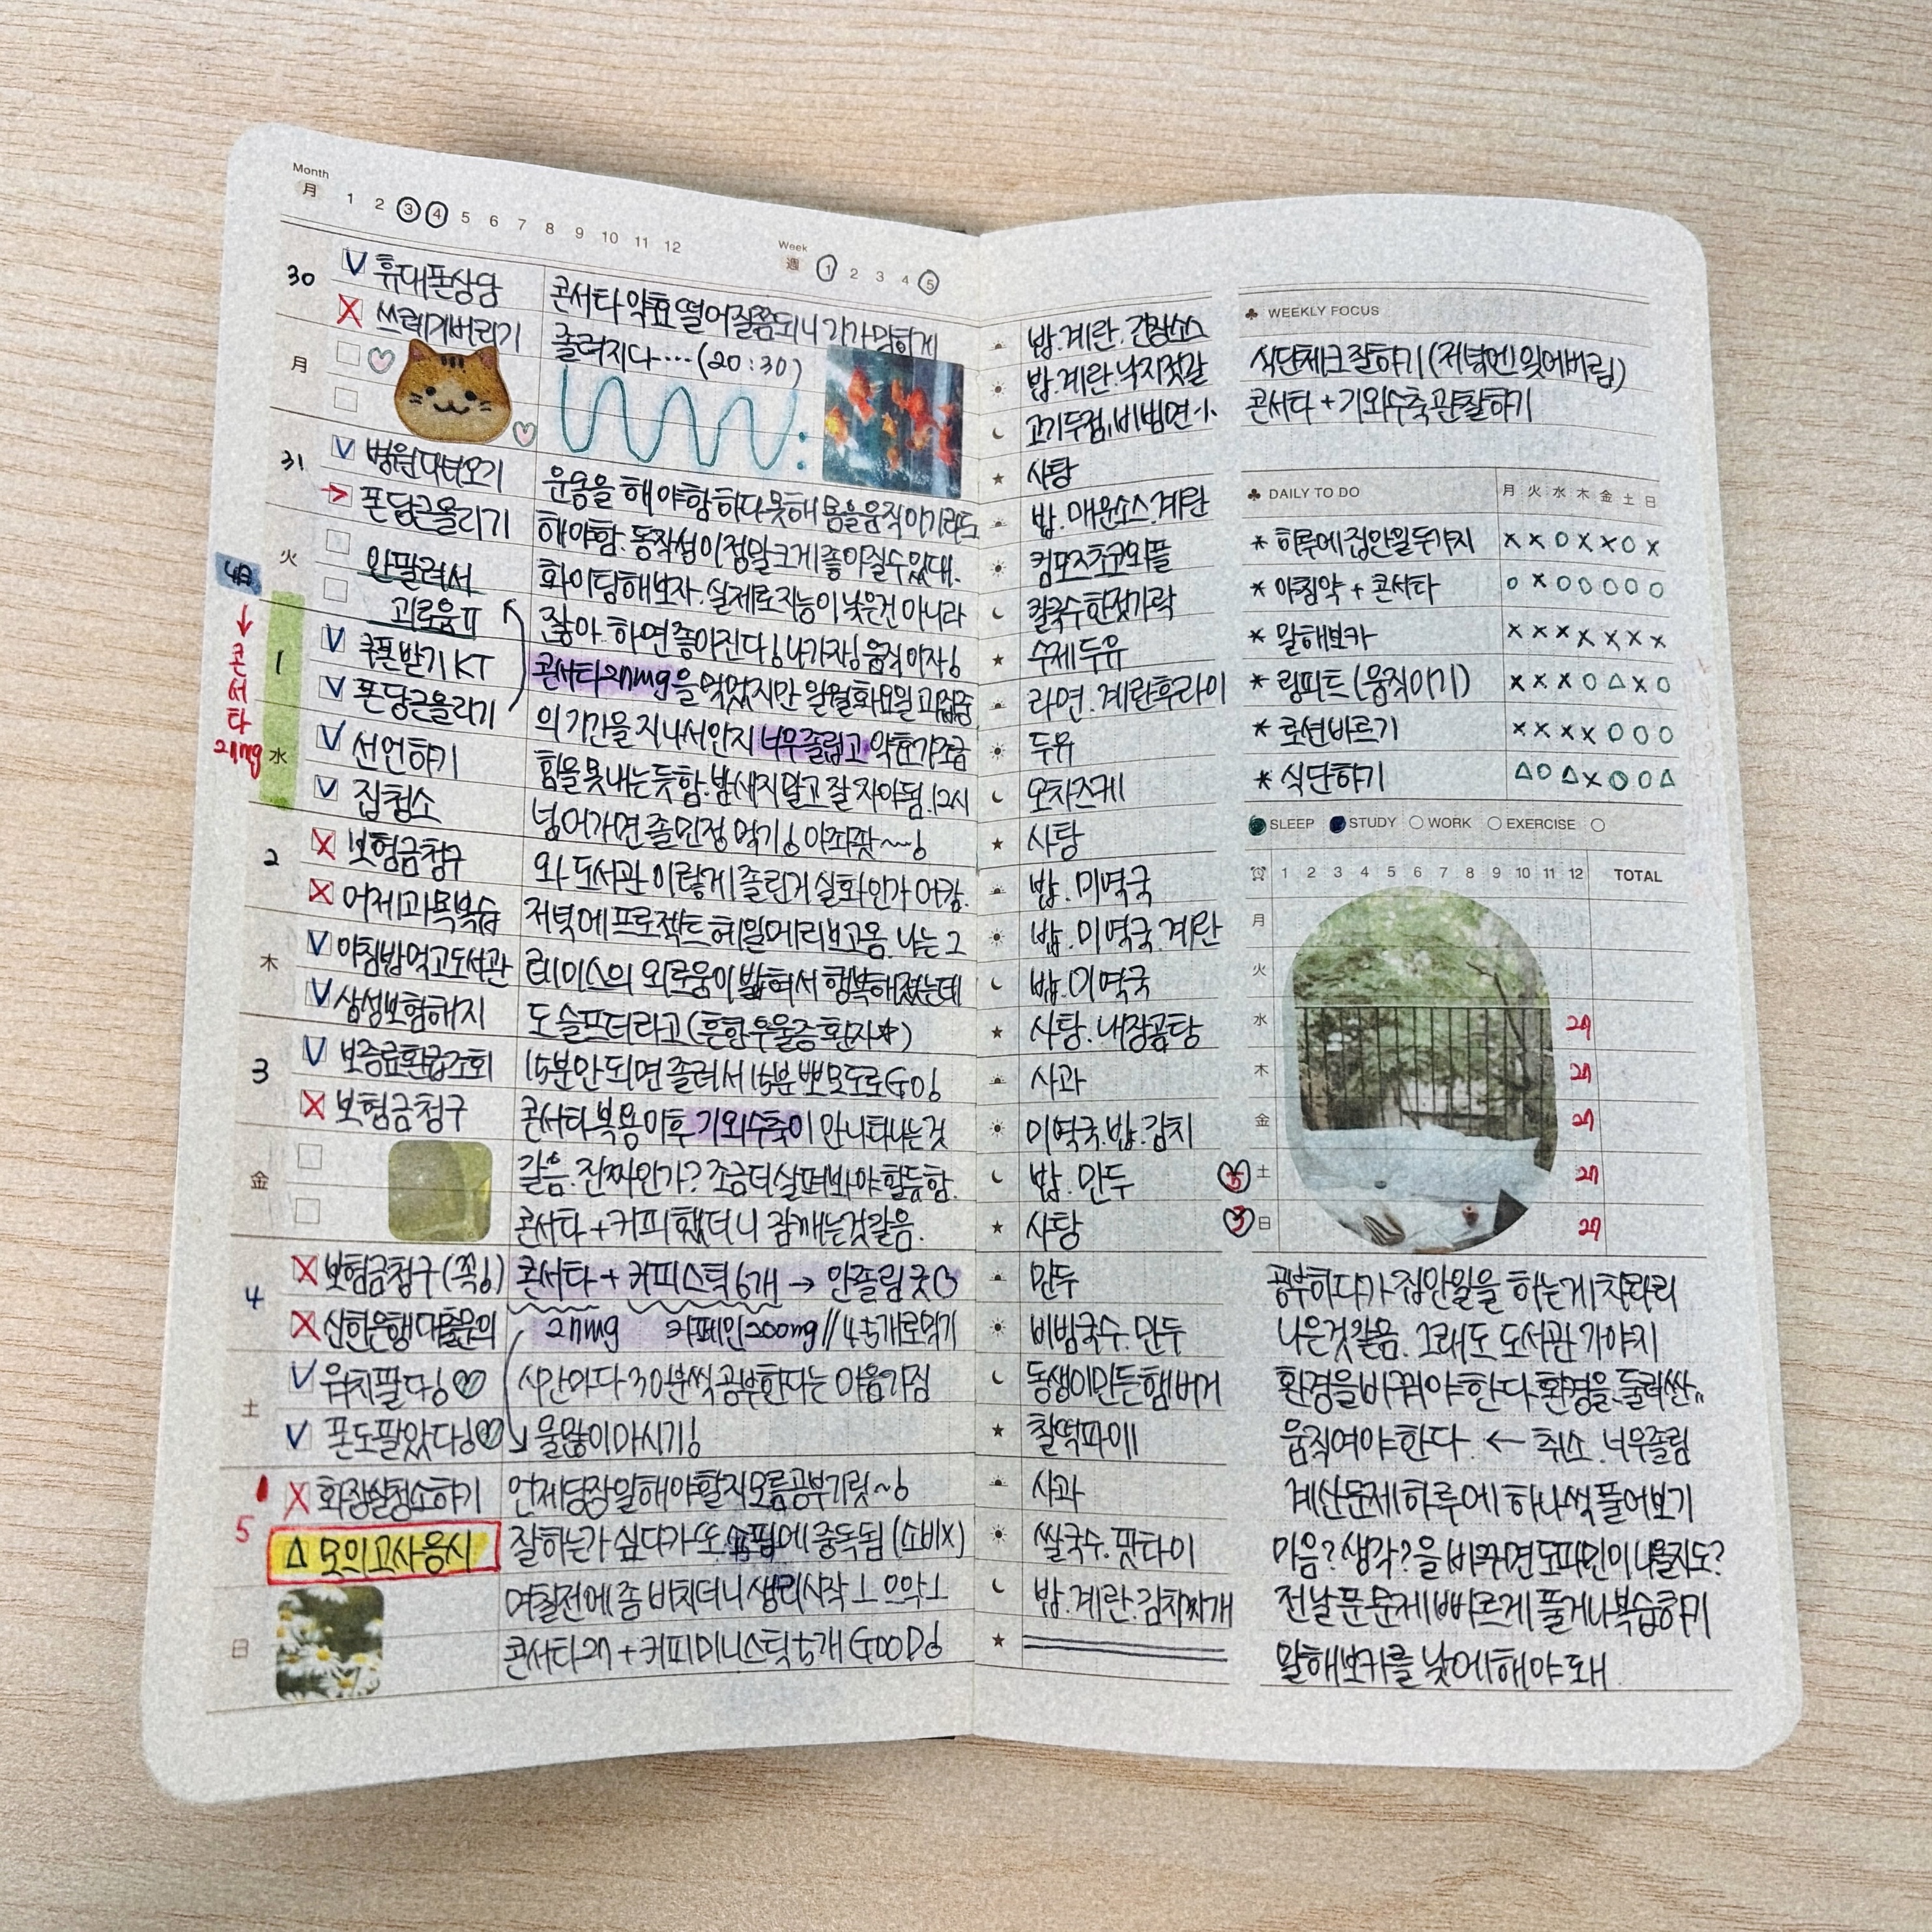 Month
月 1 2 3 4 5 6 7 8 9 10 11 12
Week
週 1 2 3 4 5
30
月
V 휴대폰상담
X 쓰레기버리기
콘서타 약효 떨어질쯤되니 기가막히게
졸려지다....(20:30)
31
火
V 병원다녀오기
→ 폰당근올리기
안팔려서
괴로움ㅠ
운동을 해야함 하다못해 몸을움직이기라도
해야함. 동작성이 정말크게 좋아질수있대.
화이팅해보자. 실제로지능이 낮은건 아니라
잖아. 하면좋아진다! 나가자! 움직이자!
4月
콘서타
27mg
1
水
V 쿠폰받기 KT
V 폰당근올리기
V 선언하기
V 집청소
콘서타27mg을 먹었지만 일월화요일 과업중
의 기간을 지나서인지 너무졸립고 약효가조금
힘을 못내는듯함. 밤새지말고 잘자야됨. 12시
넘어가면 졸민정 먹기! 아좌좟~~!
2
木
X 보험금청구
X 어제과목복습
V 아침밥먹고도서관
V 삼성보험해지
와 도서관 이렇게 졸린거 실화인가 어캄.
저녁에 프로젝트 헤일메리보고옴. 나는 그
레이스의 외로움이 밟혀서 행복해졌는데
도 슬프더라고 (흔함 우울증환자☆)
3
金
V 보증료환급조회
X 보험금청구
15분안되면 졸려서 15분 뽀모도로 GO!
콘서타 복용이후 기외수축이 안나타나는것
같음. 진짜인가? 조금더살펴봐야할듯함.
콘서타 + 커피했더니 잠깨는것같음.
4
土
X 보험금청구 (쫌!)
X 신한은행대출문의
V 워치팔다!♡
V 폰도팔았다!♡
콘서타 + 커피스틱 6개 → 안졸림 굿
27mg 카페인200mg // 4-5개로먹기
시간마다 30분씩 공부한다는 마음가짐
물많이마시기!
5
日
X 화장실청소하기
△ 모의고사응시
언제당장일해야할지모름공부기릿~!
잘하는가 싶다가 또 쇼핑에 중독됨 (소비X)
며칠전에 좀 비치더니 생리시작ㅗ 으악ㅗ
콘서타27 + 커피미니스틱5개 GOOD!
밥.계란.간장소스
밥.계란.낙지젓갈
고기두점,비빔면小
사탕
밥.매운소스.계란
컴포즈초코와플
칼국수한젓가락
수제두유
라면.계란후라이
두유
오차즈케
사탕
밥.미역국
밥.미역국.계란
밥.미역국
사탕.내장곰탕
사과
미역국.밥.김치
밥.만두
사탕
만두
비빔국수.만두
동생이만든햄버거
찰떡파이
사과
쌀국수.팟타이
밥.계란.김치찌개
WEEKLY FOCUS
식단체크잘하기(저녁엔잊어버림)
콘서타 + 기외수축관찰하기
DAILY TO DO 月 火 水 木 金 土 日
* 하루에집안일두가지 X X O X X O X
* 아침약 + 콘서타 O X O O O O O
* 말해보카 X X X X X X X
* 링피트(움직이기) X X X O △ X O
* 로션바르기 X X X X O O O
* 식단하기 △ O △ X O O △
SLEEP STUDY WORK EXERCISE
1 2 3 4 5 6 7 8 9 10 11 12 TOTAL
月
火
水 27
木 27
金 27
5 土 27
5 日 27
공부하다가 집안일을 하는게 차라리
나은것같음. 그래도 도서관 가야지
환경을바꿔야한다. 환경을. 둘러싼..
움직여야한다. ← 취소. 너무졸림
계산문제하루에 하나씩풀어보기
마음? 생각?을 바꾸면 도파민이나올지도?
전날푼문제빠르게 풀거나복습하기
말해보카를 낮에해야돼